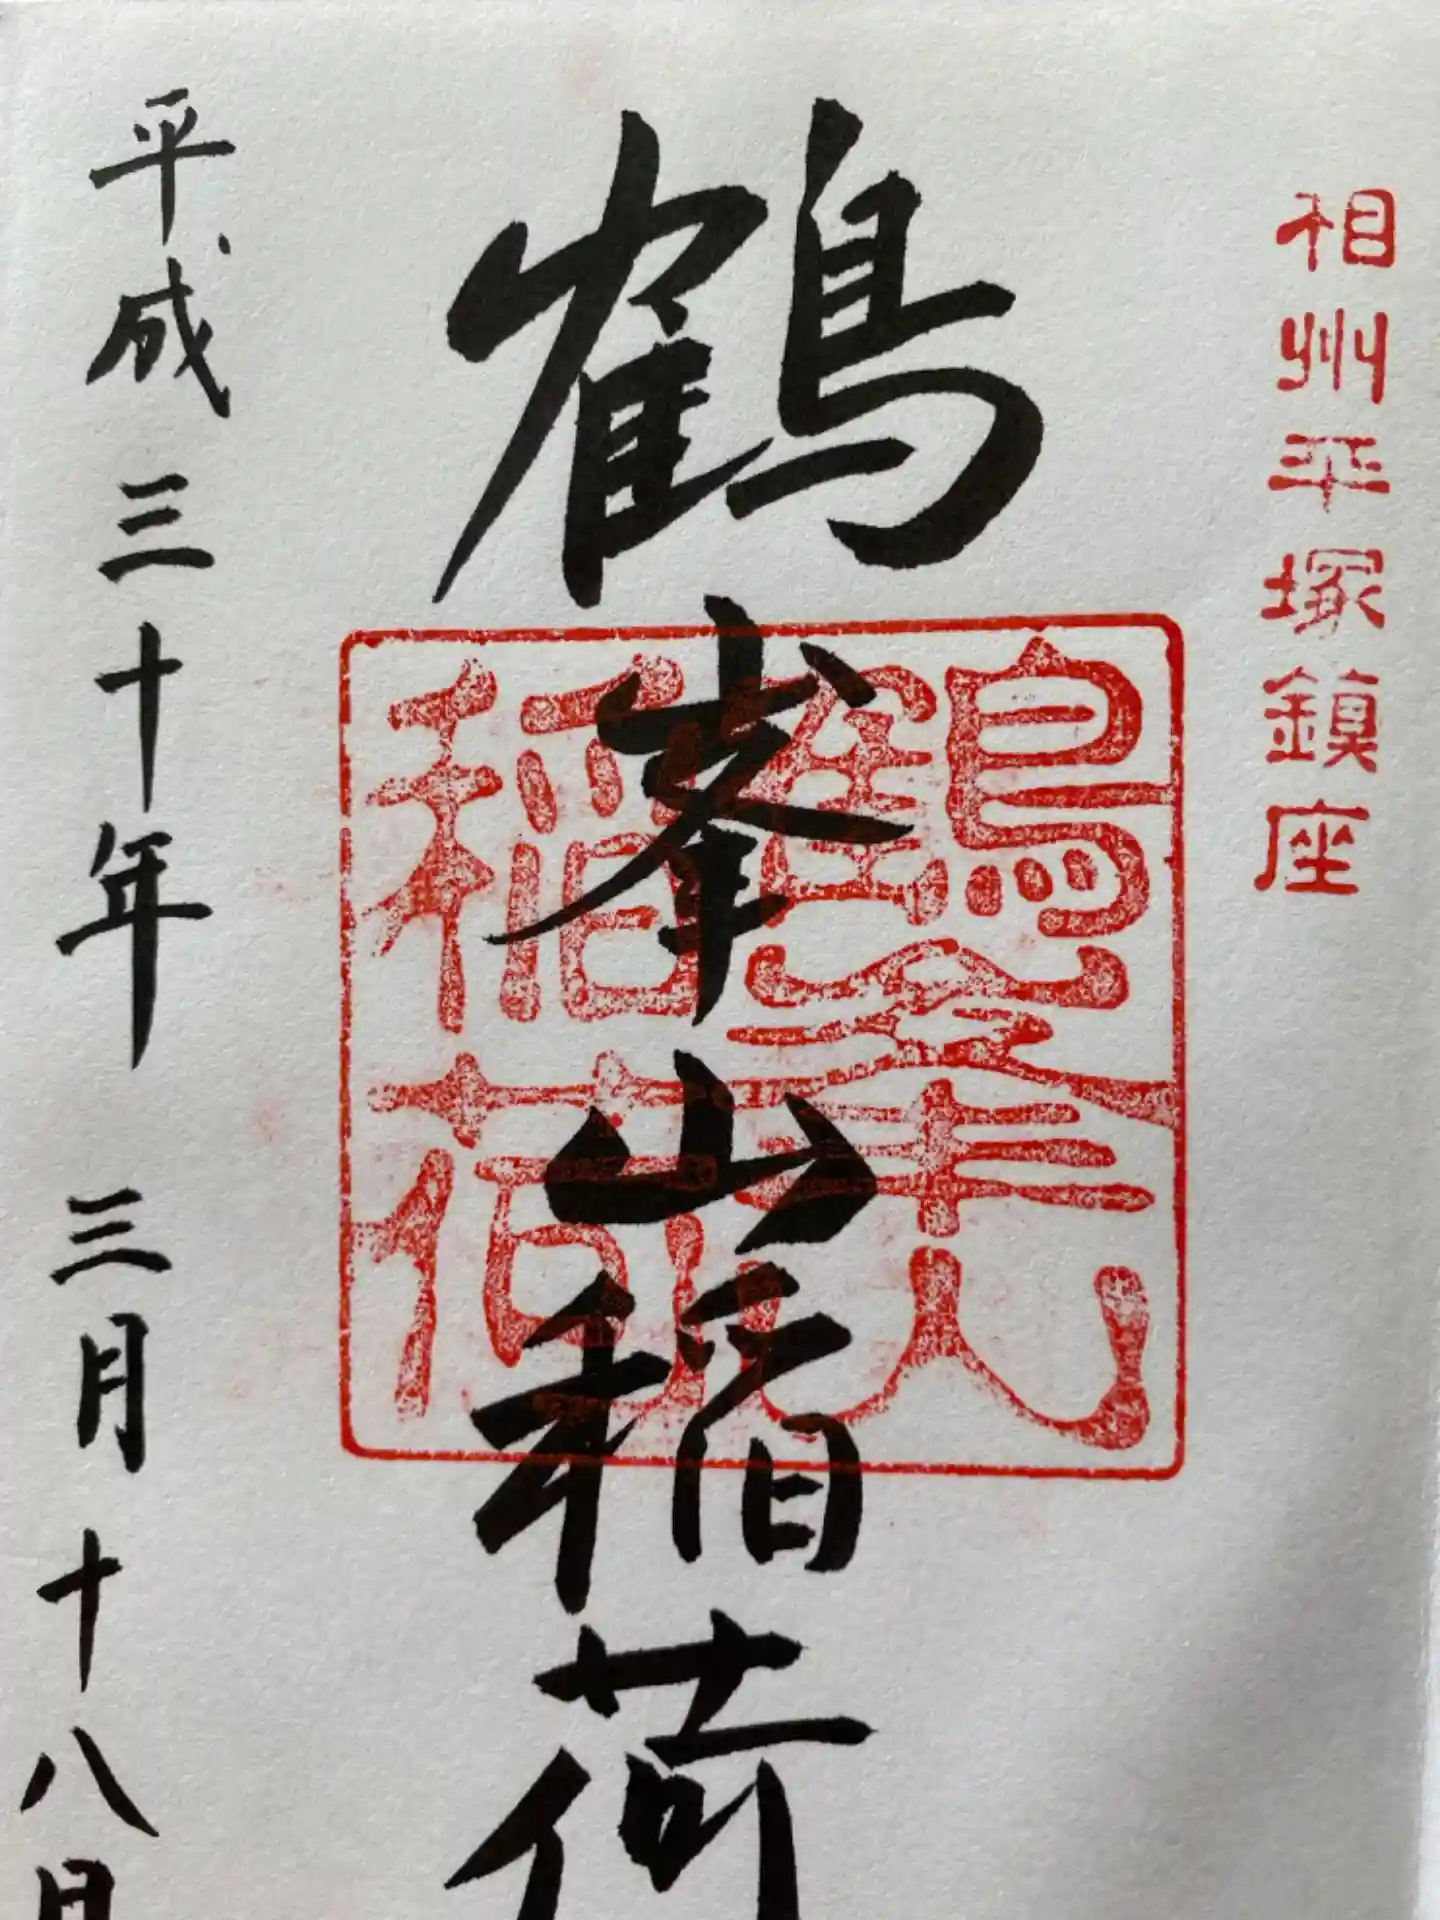 相州平塚鎮座
鶴峯山稲荷
鶴峯山稲荷
平成三十年三月十八日